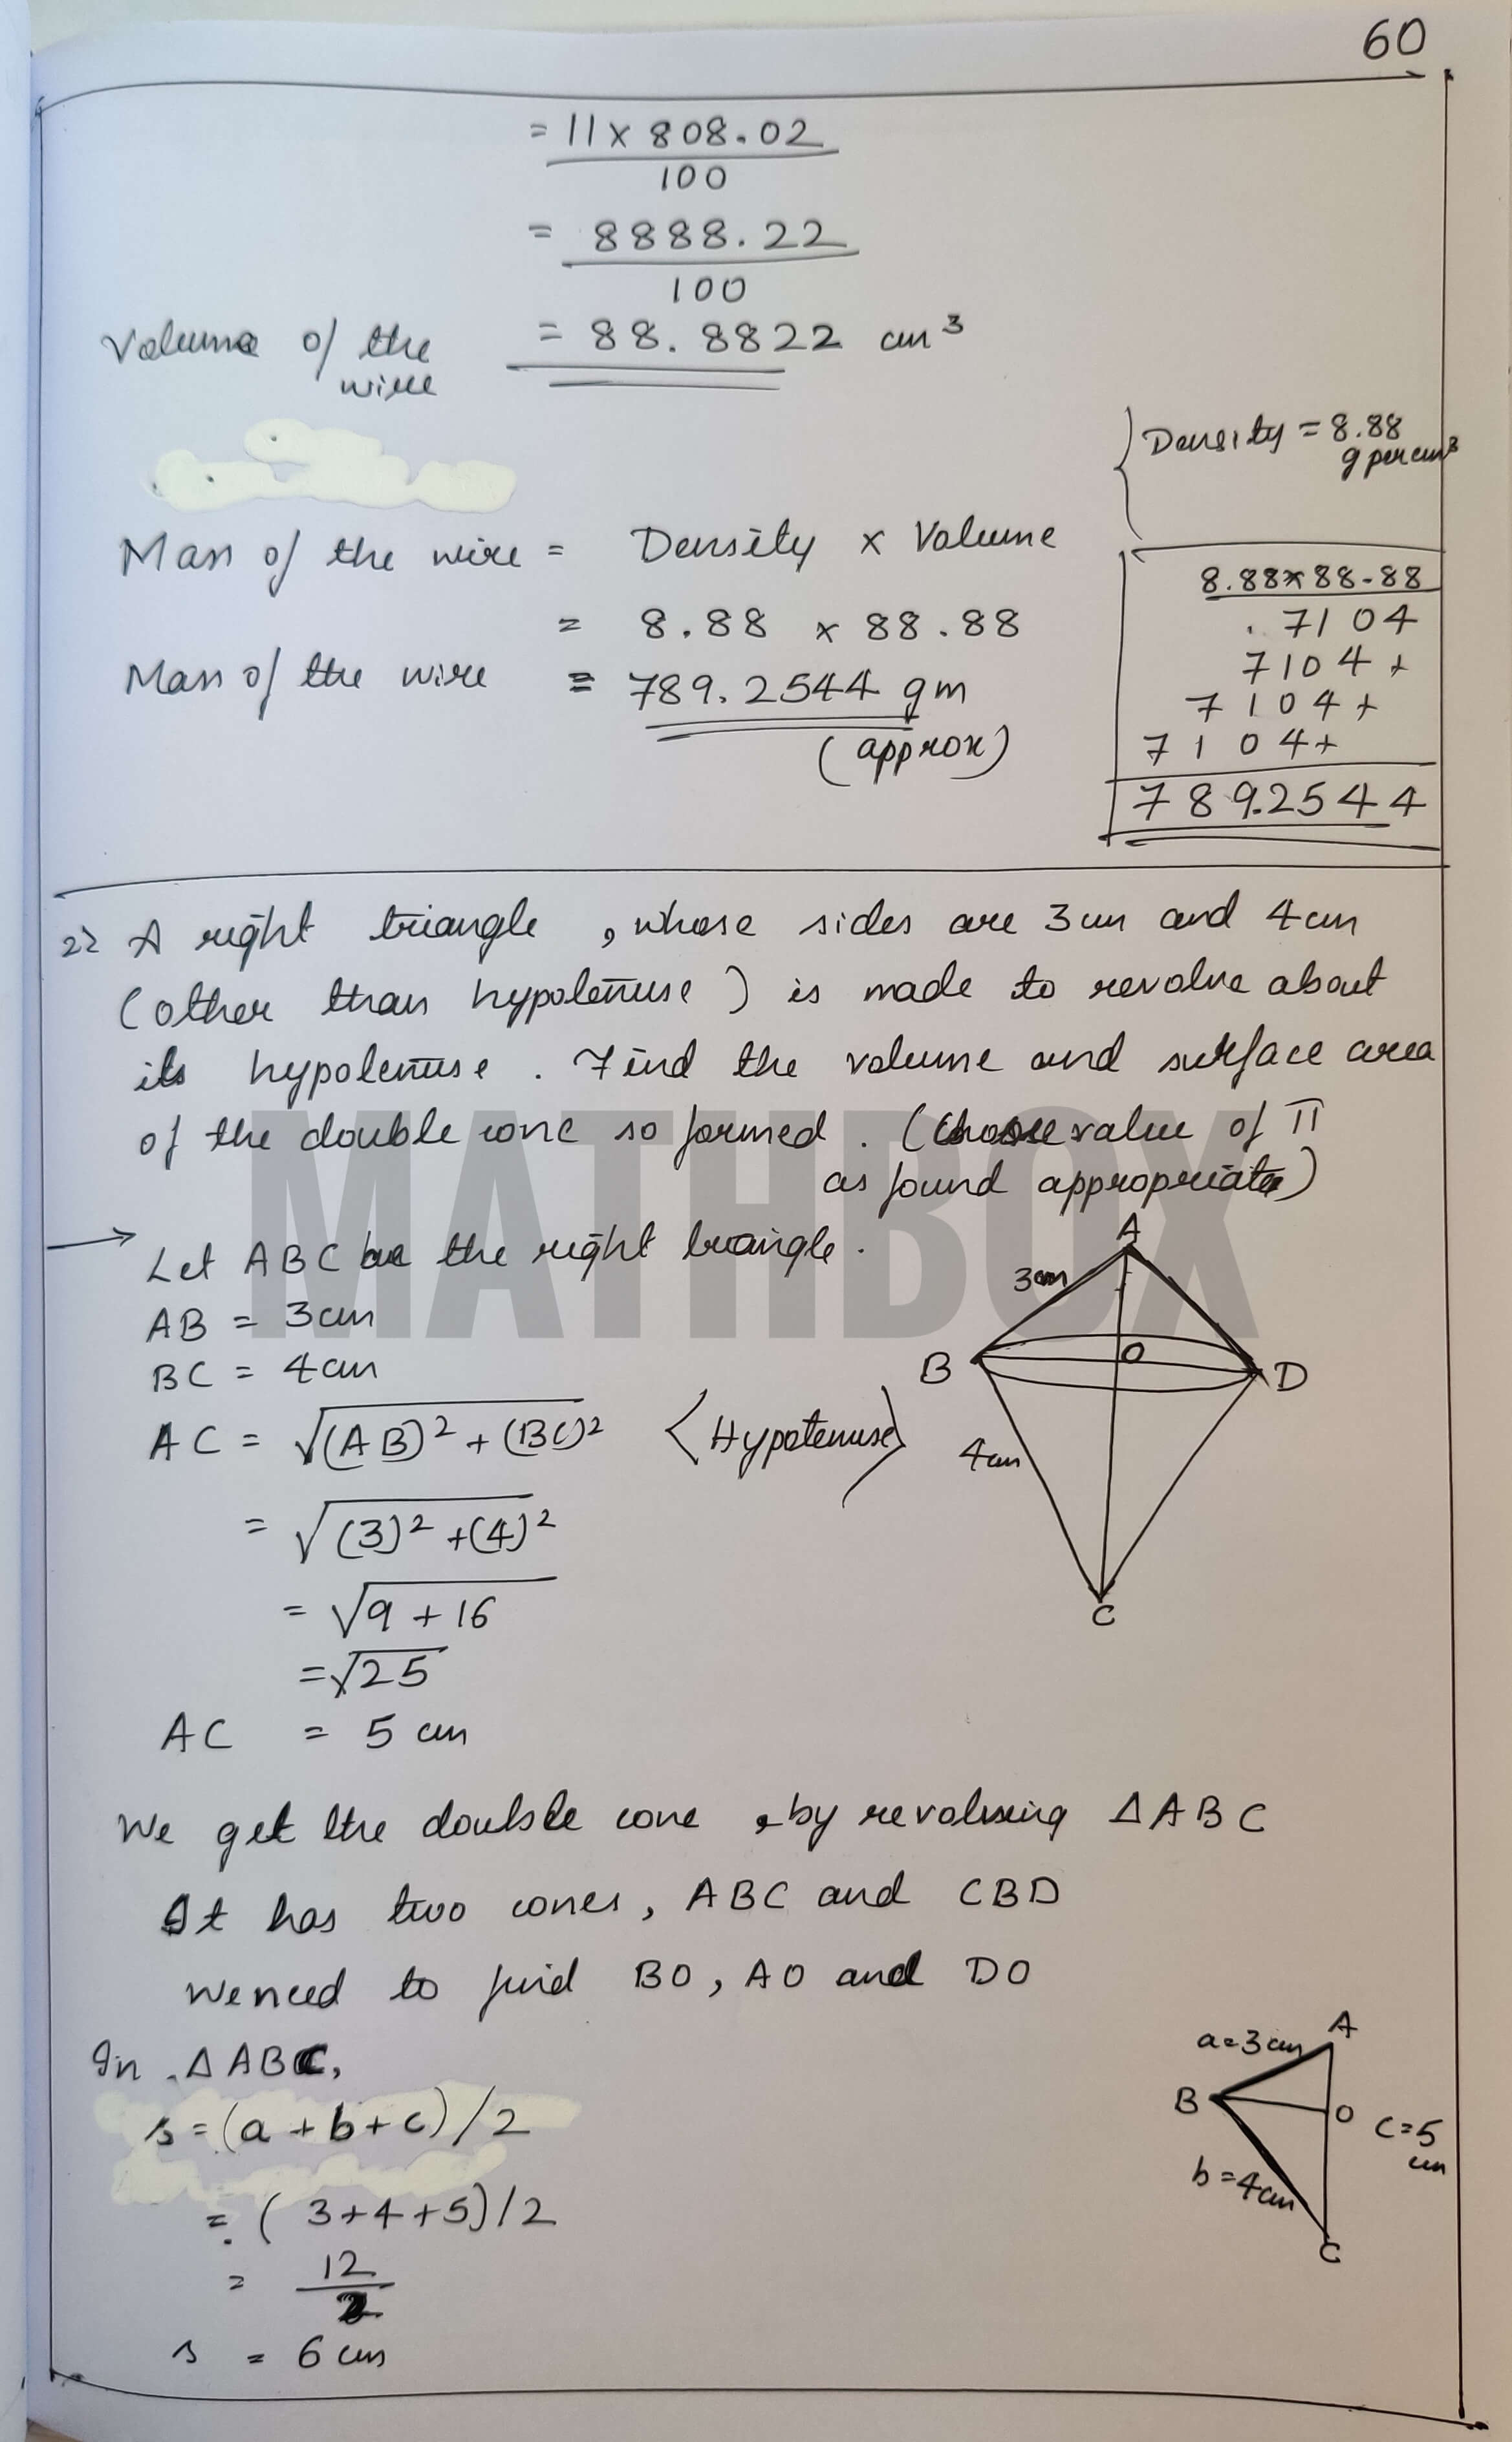 60
= 11 x 808.02
100
= 8888.22
100
Volume of the wire = 88.8822 cm³
Density = 8.88
g per cm³
Mass of the wire = Density x Volume
= 8.88 x 88.88
Mass of the wire = 789.2544 gm
(approx)
8.88x88.88
7104
7104+
7104+
7104+
789.2544
2) A right triangle, whose sides are 3cm and 4cm
(other than hypotenuse) is made to revolve about
its hypotenuse. Find the volume and surface area
of the double cone so formed. (Choose value of π
as found appropriate)
MATHBOX
→ Let ABC be the right triangle.
AB = 3cm
BC = 4cm
AC = √(AB)² + (BC)² <Hypotenuse>
= √(3)² + (4)²
= √9 + 16
= √25
AC = 5 cm
A
3cm
B
O
D
4cm
C
We get the double cone, by revolving ΔABC
It has two cones, ABC and CBD
We need to find BO, AO and DO
In ΔABC,
s = (a + b + c)/2
= (3+4+5)/2
= 12
2
s = 6 cm
A
a=3cm
B
O
c=5
cm
b=4cm
C